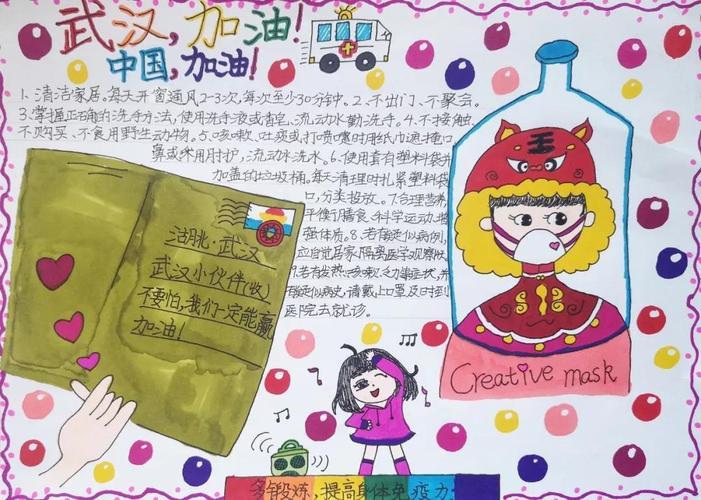 武汉,加油!
中国,加油!
1、清洁家居。每天开窗通风2-3次,每次至少30分钟。2、不出门、不聚会。
3、掌握正确的洗手方法,使用洗手液或香皂,流动水勤洗手。4、不接触、
不购买、不食用野生动物。5、咳嗽、吐痰或打喷嚏时用纸巾遮掩口
鼻或采用肘护,流动水洗水。6、使用套有塑料袋并
加盖的垃圾桶。每天清理时扎紧塑料袋
口,分类投放。7、合理营养
平衡膳食,科学运动增
强体质。8、若有疑似病例,
应自觉居家隔离医学观察
9、若有发热、咳嗽、乏力等症状,并
有疑似病史,请戴上口罩及时到
医院去就诊。
湖北·武汉
武汉小伙伴(收)
不要怕,我们一定能赢
加油!
王
Creative mask
多锻炼,提高身体免疫力